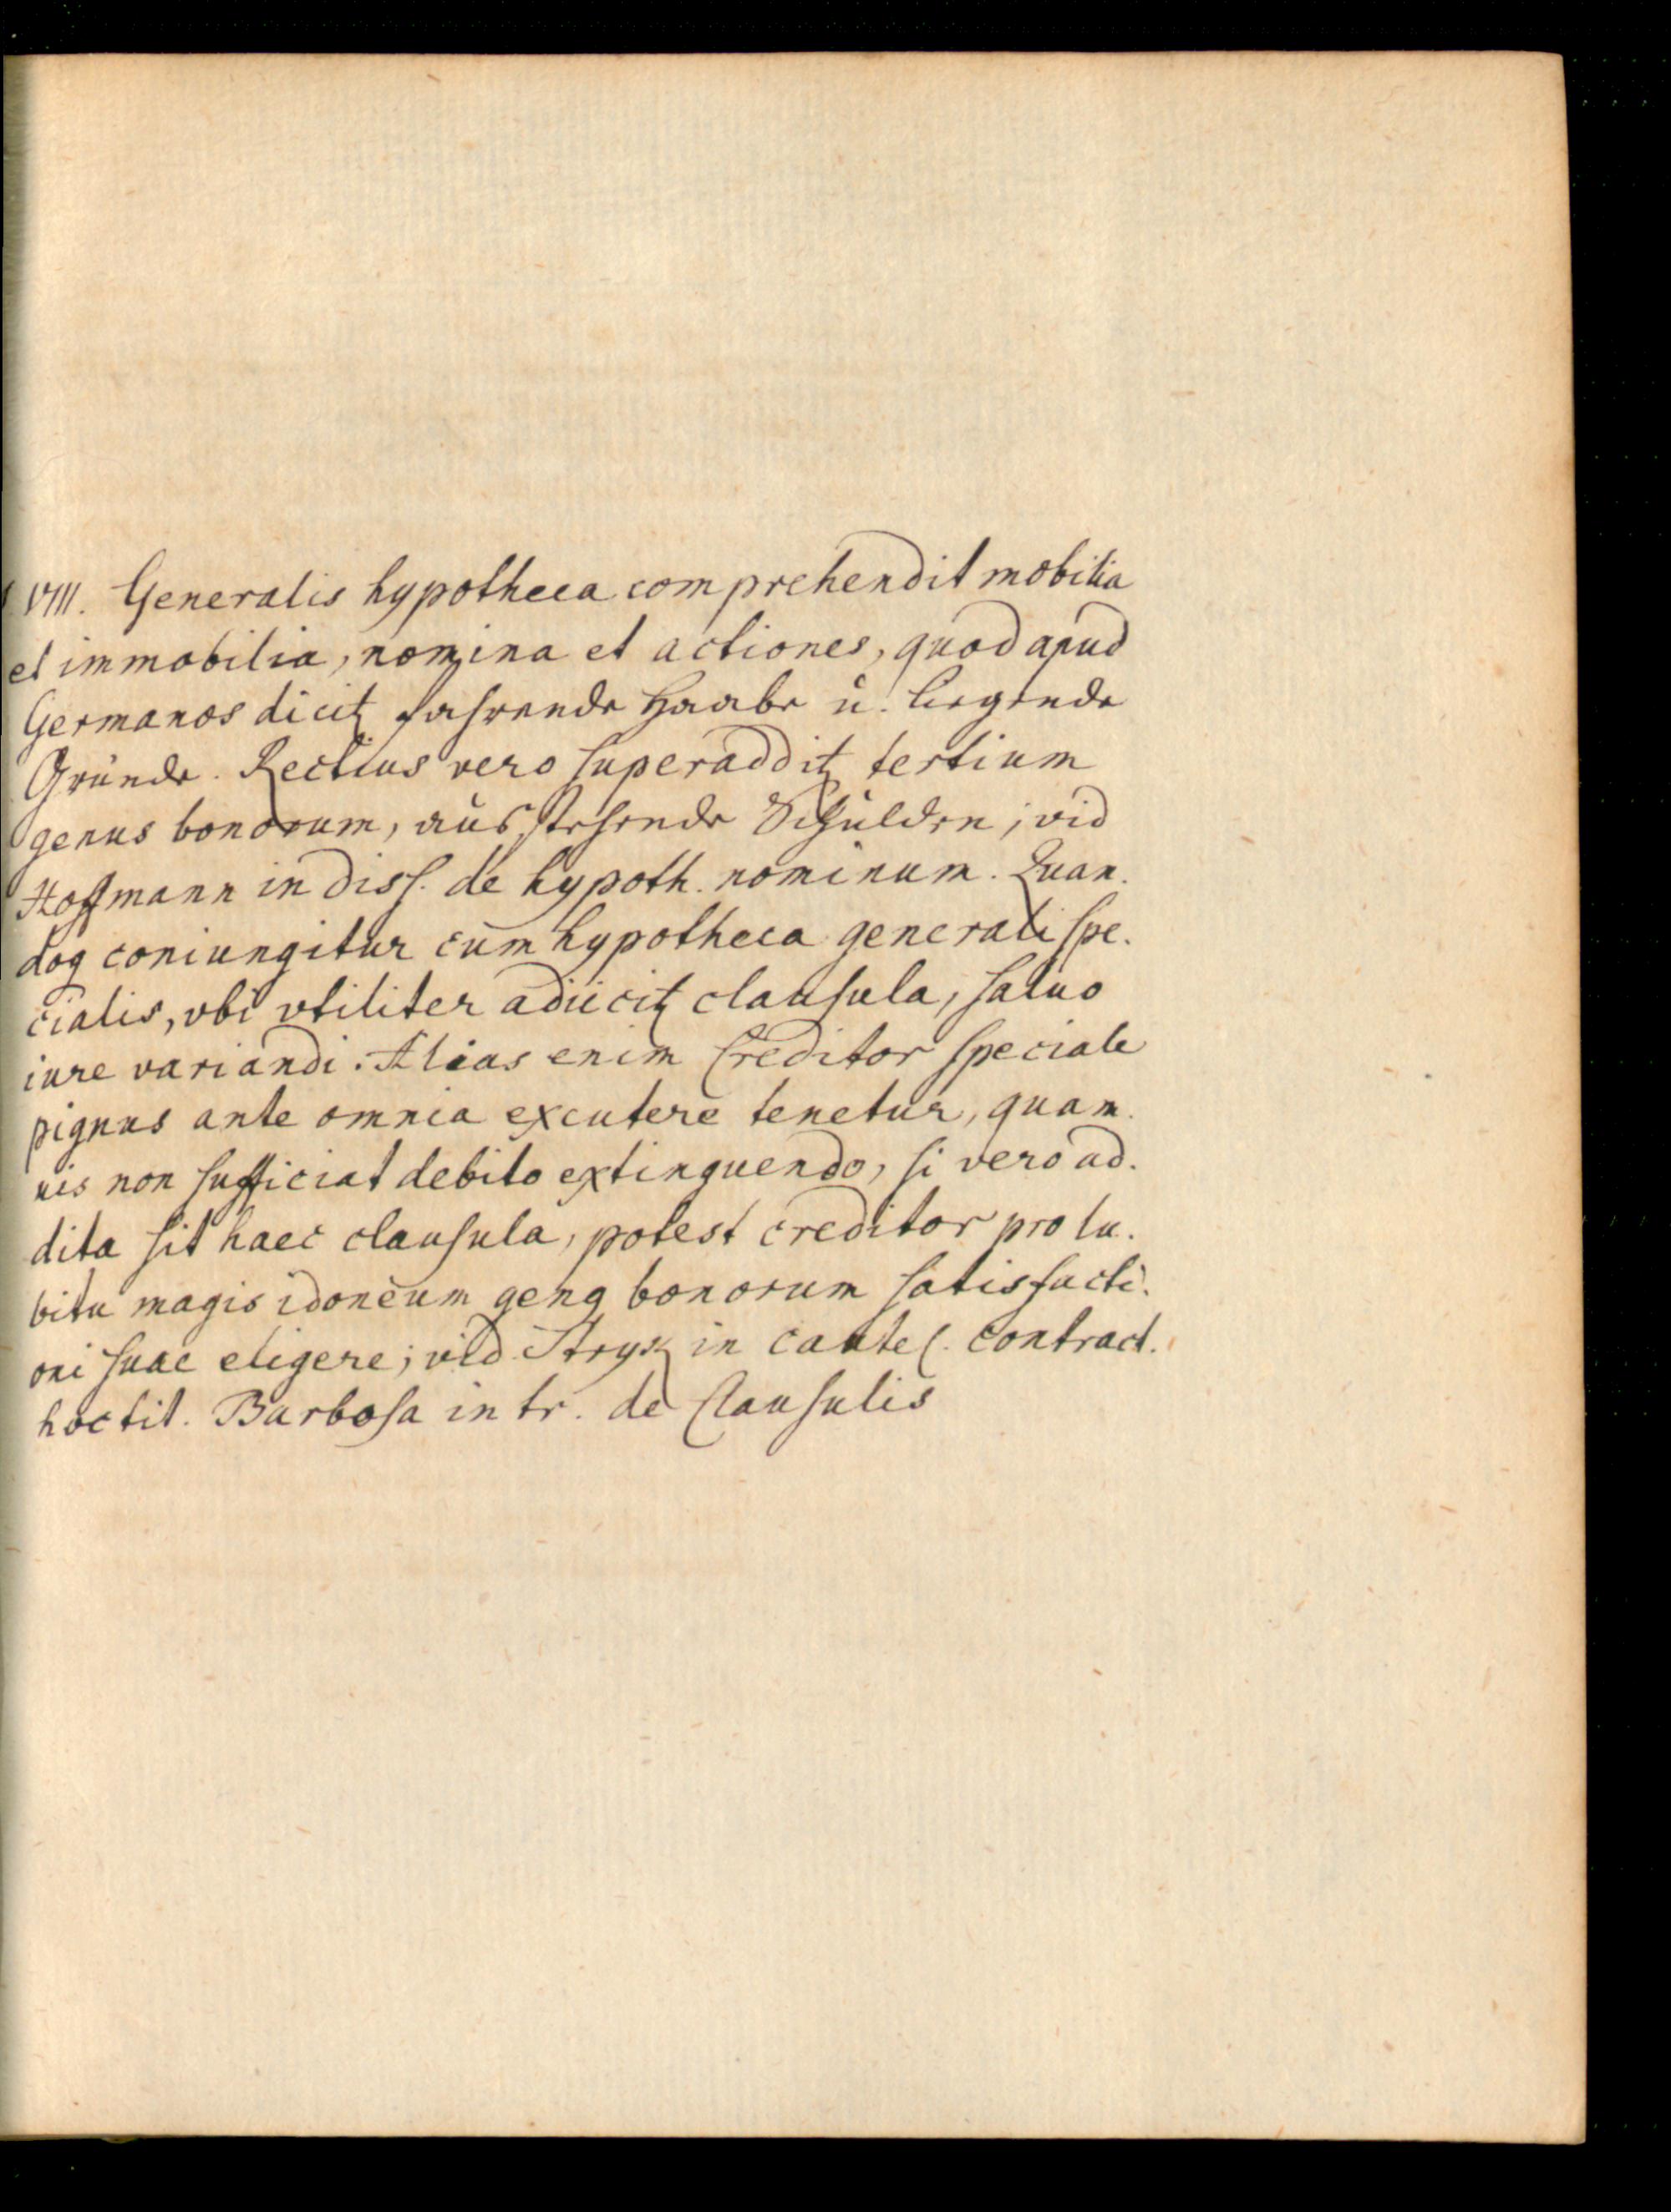 VIII. Generalis hypotheca comprehendit mobilia
et immobilia, nomina et actiones, quod apud
Germanos dicitꝫ fahrende Haabe ŭ. liegende
Gründe. Rectius vero ſuperadditꝫ tertium
genus bonorum, aŭsſtehende Schŭlden; vid
Hoffmann in diſſ. de hypoth. nominum. Quan.
doq coniungitur cum hypotheca generali ſpe.
cialis, vbi vtiliter adiicitꝫ clauſula, ſaluo
iure variandi. Alias enim Creditor ſpeciale
pignus ante omnia excutere tenetur, quam.
uis non ſufficiat debito extinguendo, ſi vero ad.
dita ſit haec clauſula, poteſt creditor pro lu.
bitu magis idoneum geng bonorum ſatisfacti.
oni ſuae eligere; vid. Stryk in cautel. contract.
hoc tit. Barboſa in tr. de Clauſulis